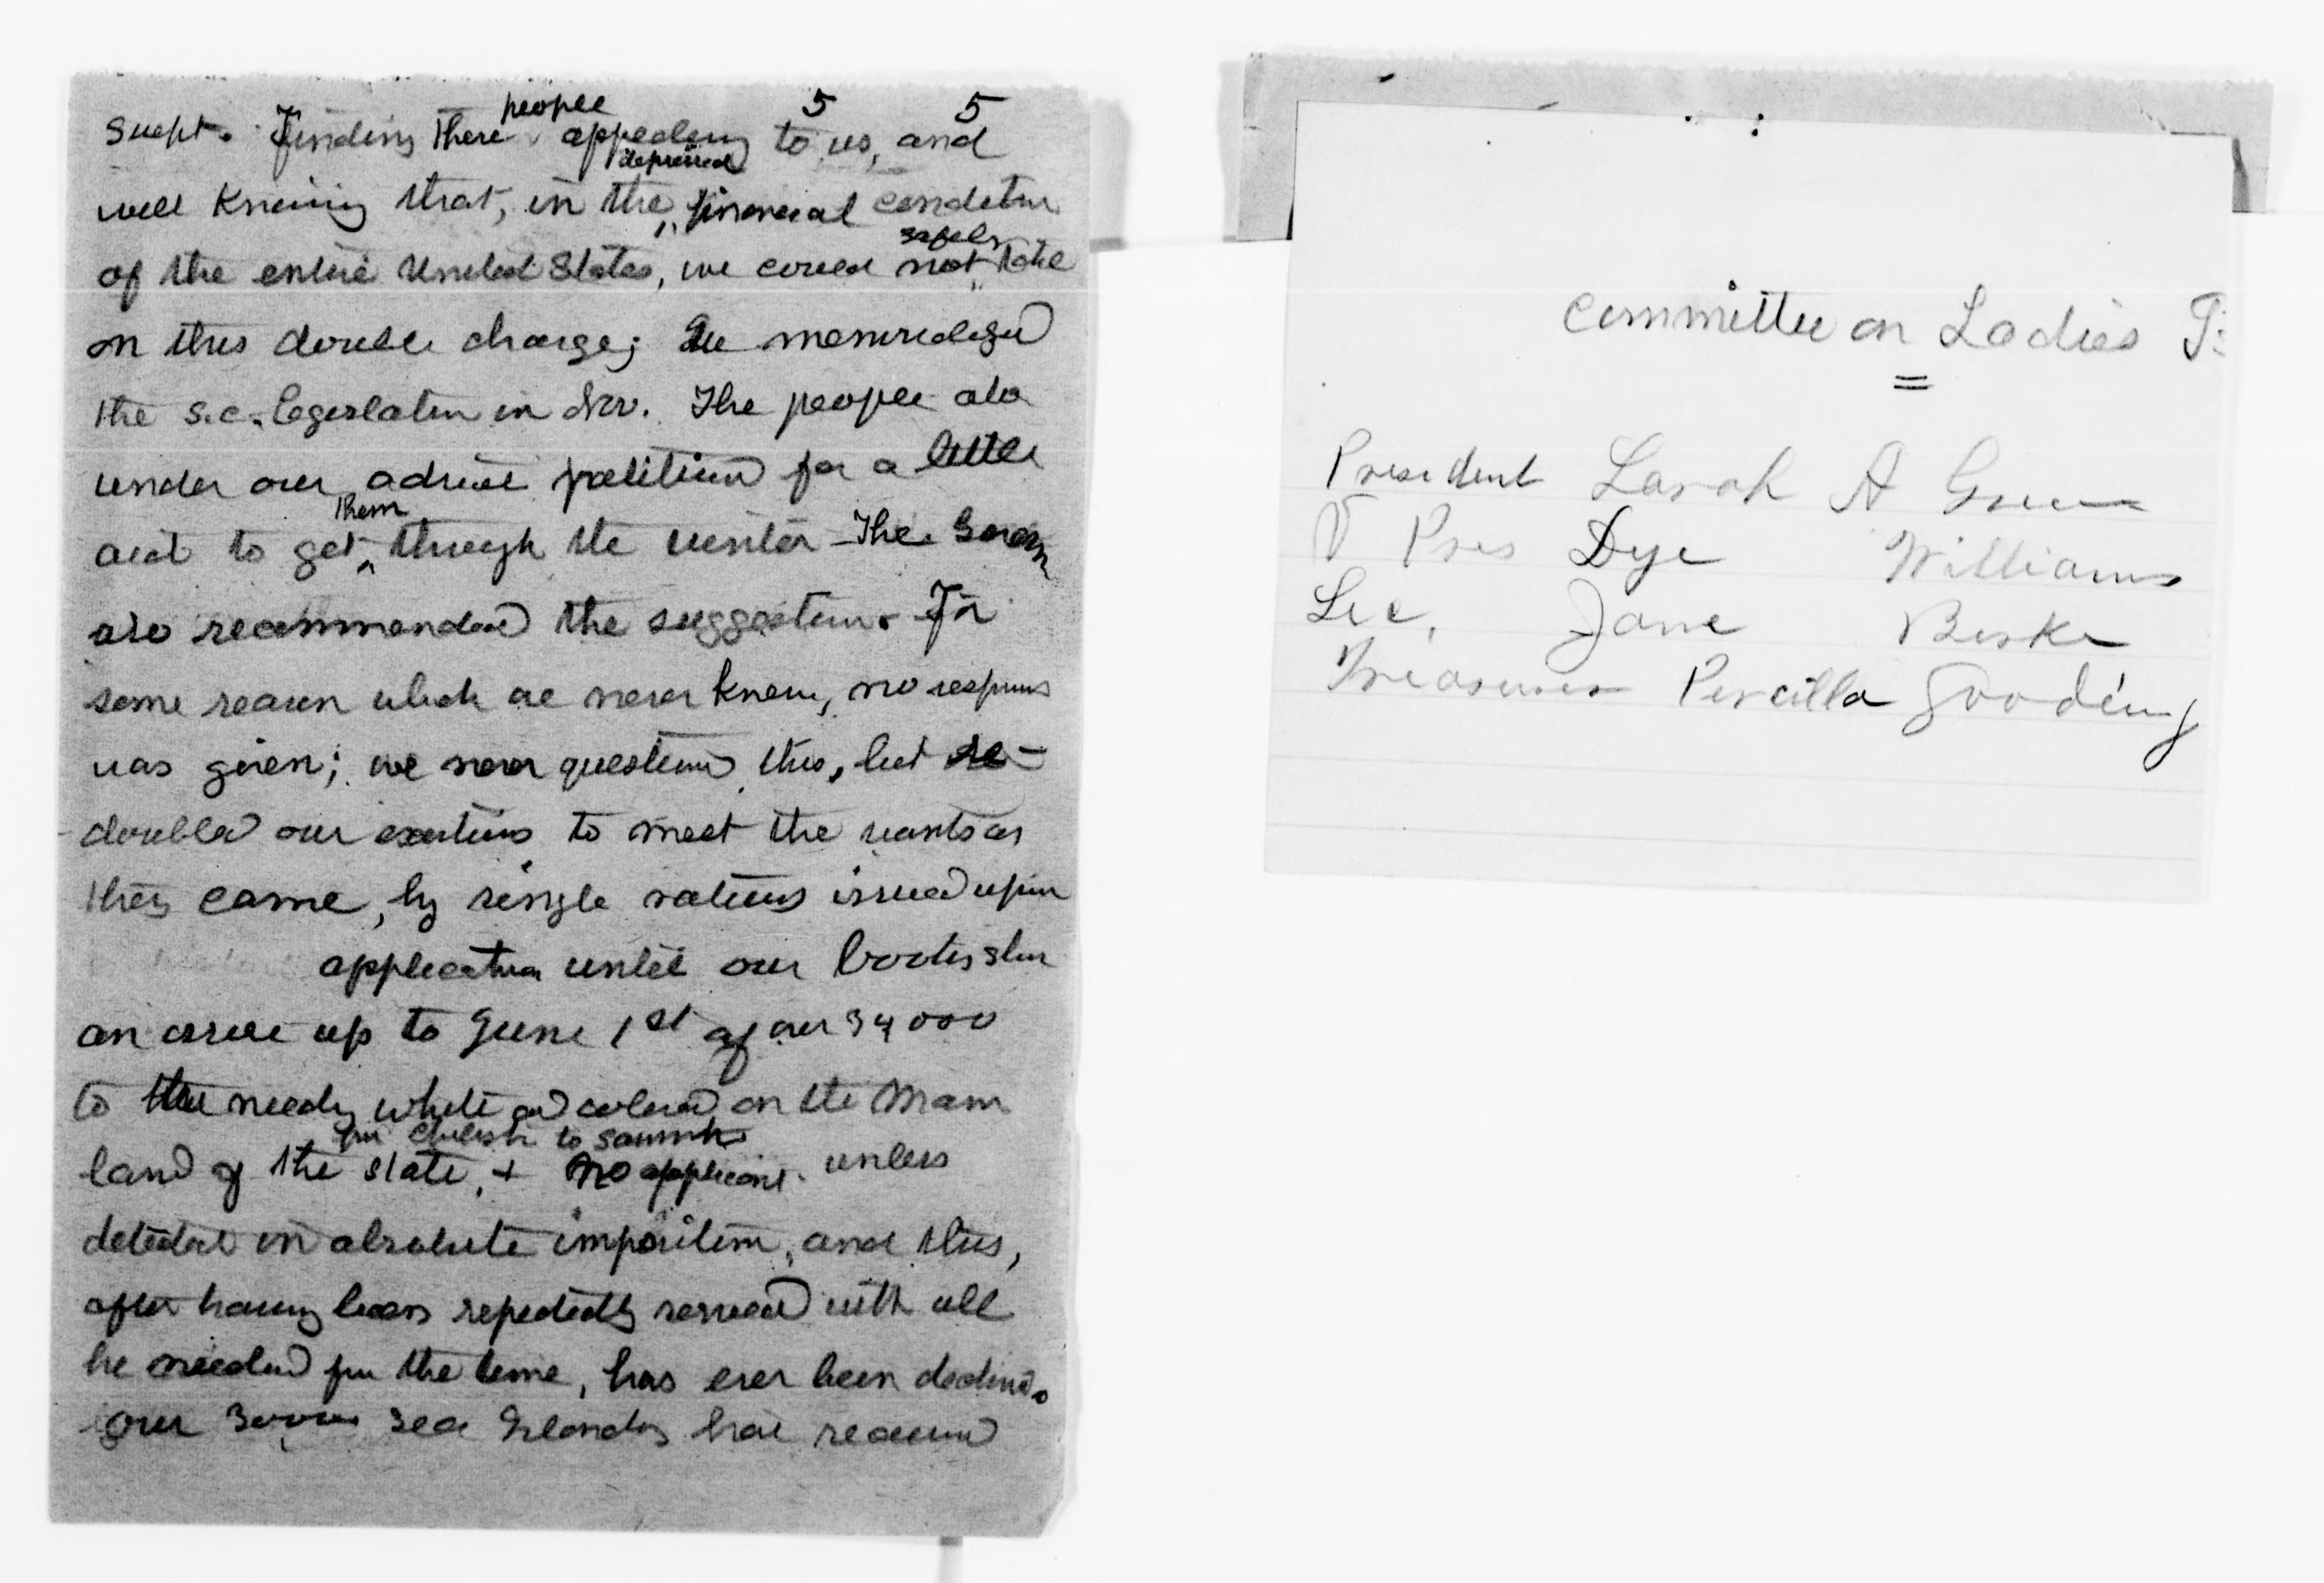 5 5
swept. Finding these people appealing to us, and
well knowing that, in the depressed financial condition
of the entire United States, we could not safely take
on this double charge; We memorialized
the S.C. Legislature in Nov. The people also
under our advice petitioned for a little
aid to get them through the winter – The Govern
also recommended the suggestion. For
some reason which we never knew, no response
was given; we never questioned this, but re-
doubled our exertions to meet the wants as
they came, by single rations issued upon
application until our books show
an issue up to June 1st of over 34000
to the needy white and colored on the Main
land of the State, + no applicant unless
detected in absolute imposition, and this,
after having been repeatedly served with all
he needed for the time, has ever been declined.
Our Sea Islanders have received
Committee on Ladies
=
President Sarah A Green
V Pres Dye Williams
Sec, Jane
Treasurer Percilla Gooding